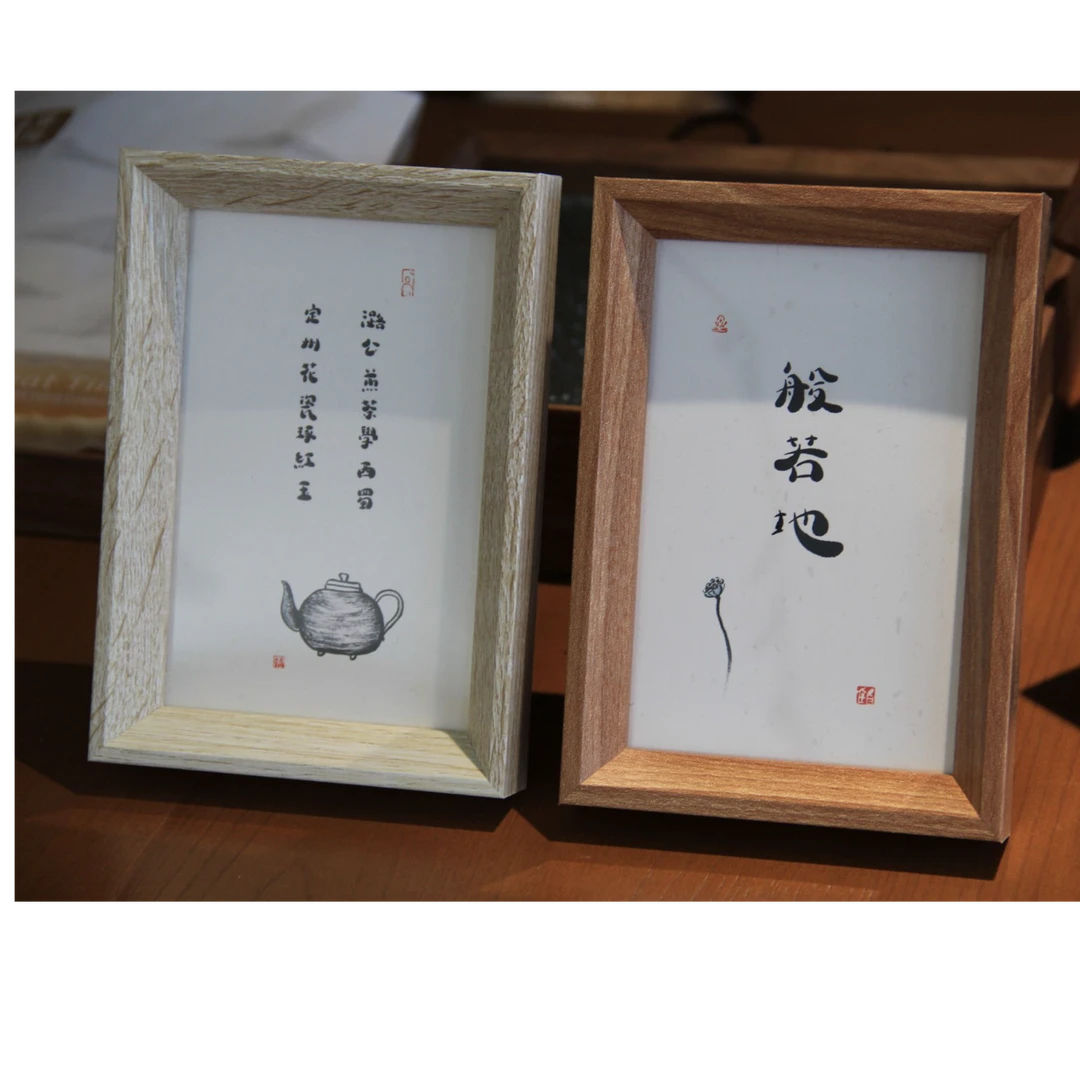 潞公煎茶學西蜀
定州花瓷琢紅玉
般若地